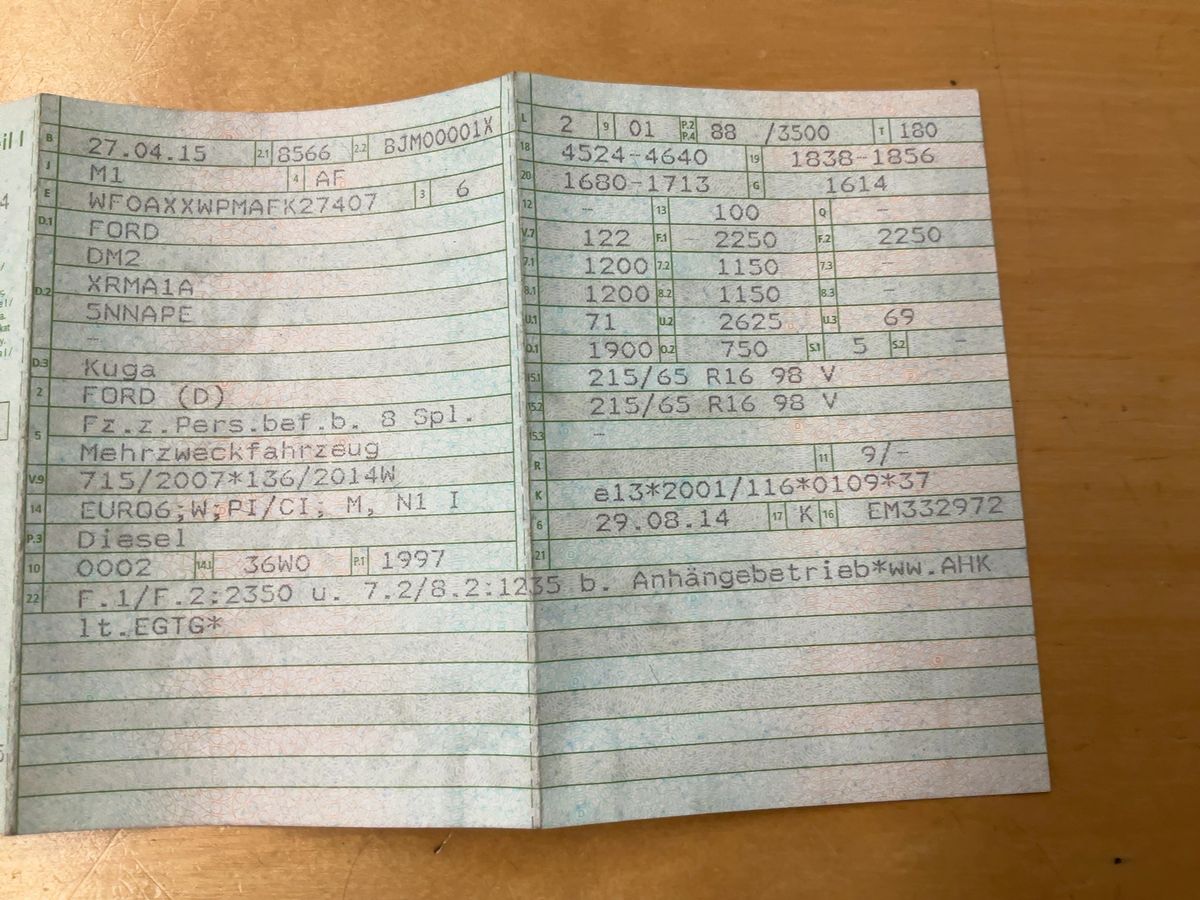 B 27.04.15 2.1 8566 2.2 BJM00001X
J M1 4 AF
E WF0AXXWPMAFK27407 3 6
D.1 FORD
DM2
D.2 XRMA1A
5NNAPE
–
D.3 Kuga
2 FORD (D)
5 Fz.z.Pers.bef.b. 8 Spl.
Mehrzweckfahrzeug
V.9 715/2007*136/2014W
14 EURO6;W;PI/CI; M, N1 I
P.3 Diesel
10 0002 14.1 36W0 P.1 1997
22 F.1/F.2:2350 u. 7.2/8.2:1235 b. Anhängebetrieb*ww.AHK
lt.EGTG*
L 2 9 01 P.2 P.4 88 /3500 T 180
18 4524-4640 19 1838-1856
20 1680-1713 G 1614
12 – 13 100 Q –
V.7 122 F.1 2250 F.2 2250
7.1 1200 7.2 1150 7.3 –
8.1 1200 8.2 1150 8.3 –
U.1 71 U.2 2625 U.3 69
O.1 1900 O.2 750 S.1 5 S.2 –
15.1 215/65 R16 98 V
15.2 215/65 R16 98 V
15.3 –
R 11 9/-
K e13*2001/116*0109*37
6 29.08.14 17 K 16 EM332972
21